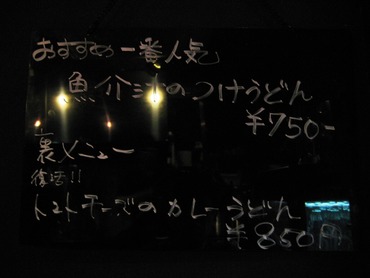 おすすめ一番人気
魚介汁のつけうどん
¥750-
裏メニュー
復活!!
トマトチーズのカレーうどん
¥850円